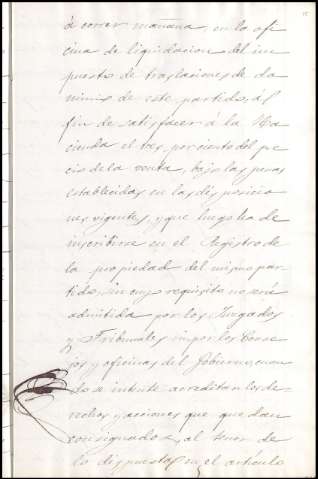 á correr mañana, en la ofi
cina de liquidacion del im
puesto de traslaciones de do
minio de este partido, al
fin de satisfacer á la Ha
cienda el tres por ciento del pre
cio de la venta, bajo las penas
establecidas en las disposicio
nes vigentes, y que luego ha de
inscribirse en el Registro de
la propiedad del mismo par
tido, sin cuyo requisito no será
admitida por los Juzgados
y Tribunales ni por los Conse
jos y oficinas del Gobierno, cuan
do se intente acreditar los de
rechos y acciones que quedan
consignados, al tenor de
lo dispuesto en el artículo